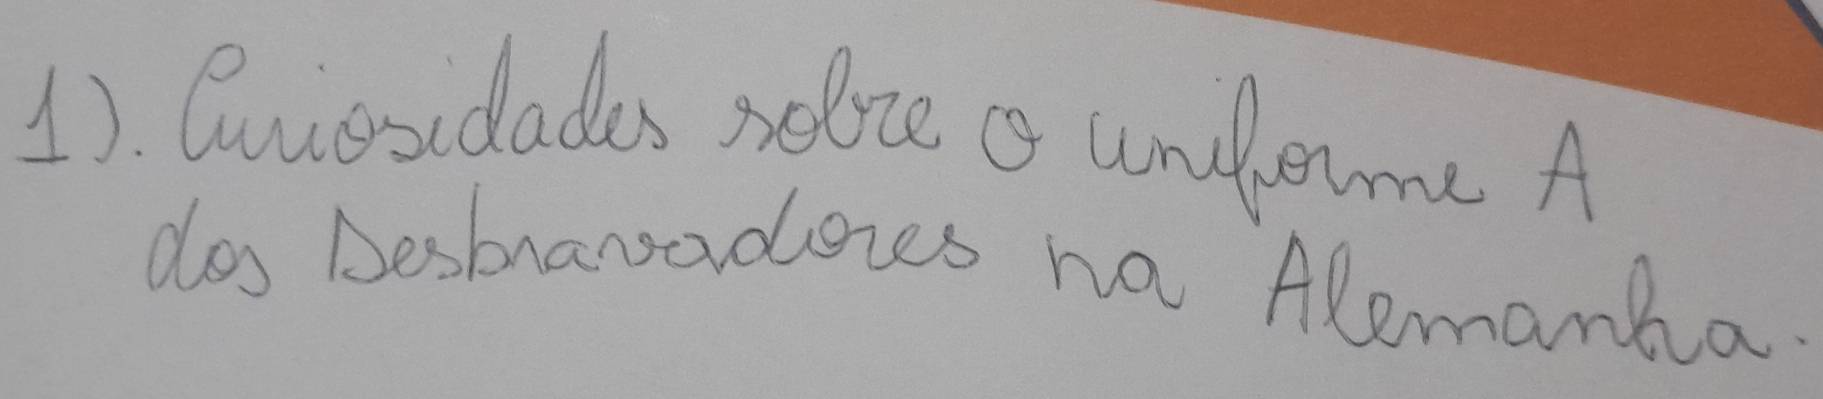 1). Curiosidades sobre o uniforme A
dos Desbravadores na Alemanha.